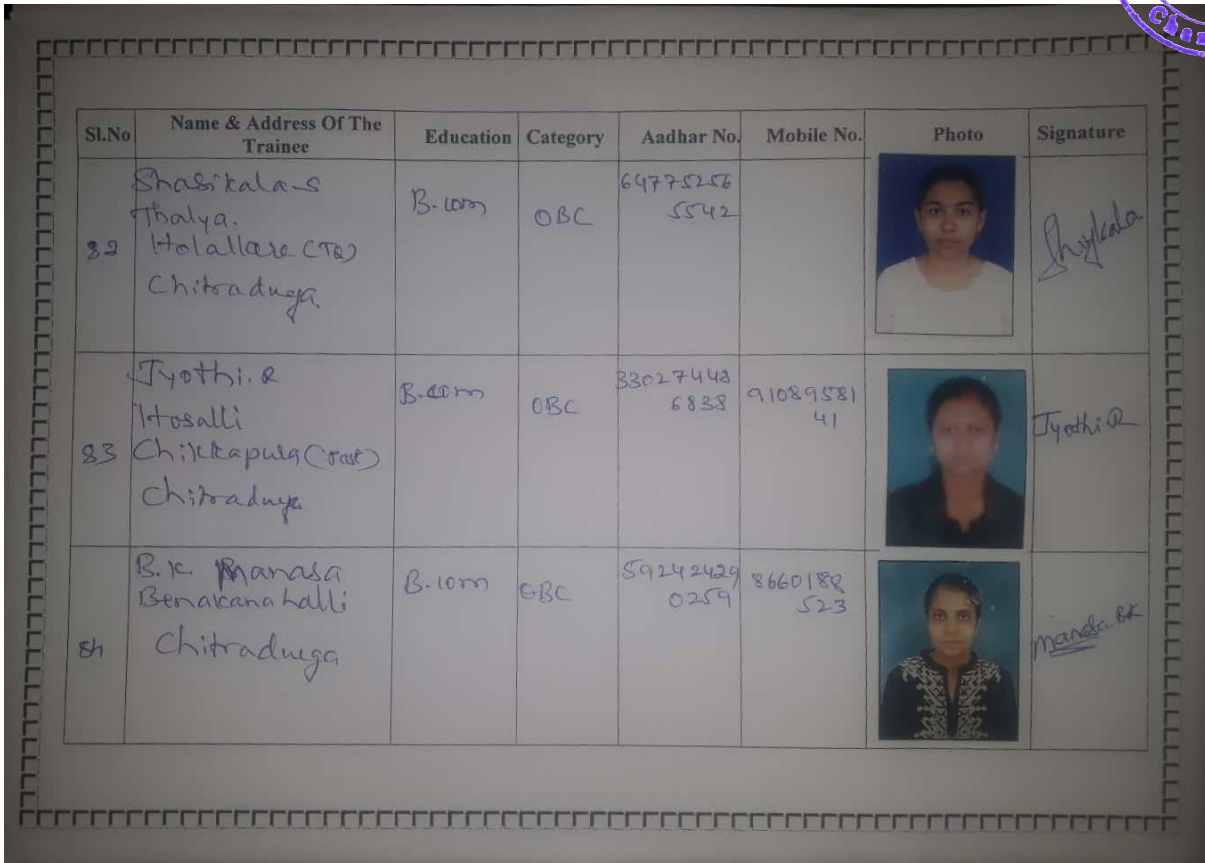 Sl.No Name & Address Of The Trainee Education Category Aadhar No. Mobile No. Photo Signature
82
Shasikala S
Thalya.
Holallare (TQ)
Chitradurga.
B.com
OBC
64775256
5542
83
Jyothi. R
Hosalli
Chikkapura (Post)
Chitradurga
B.com
OBC
33027448
6838
91089581
41
Jyothi R
84
B.K. Manasa
Benakanahalli
Chitradurga
B.com
OBC
59242429
0259
8660188
523
Manasa. BK